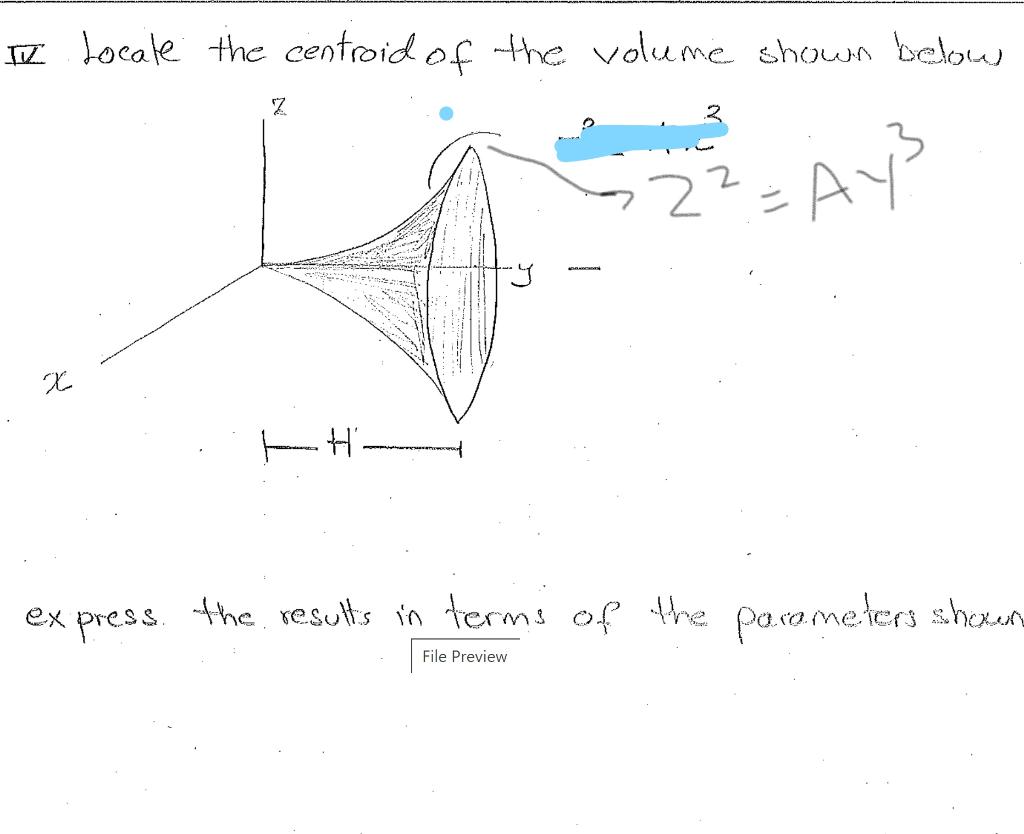 IV Locate the centroid of the volume shown below
z
3
Z² = AY³
y
x
H
express the results in terms of the parameters shown
File Preview